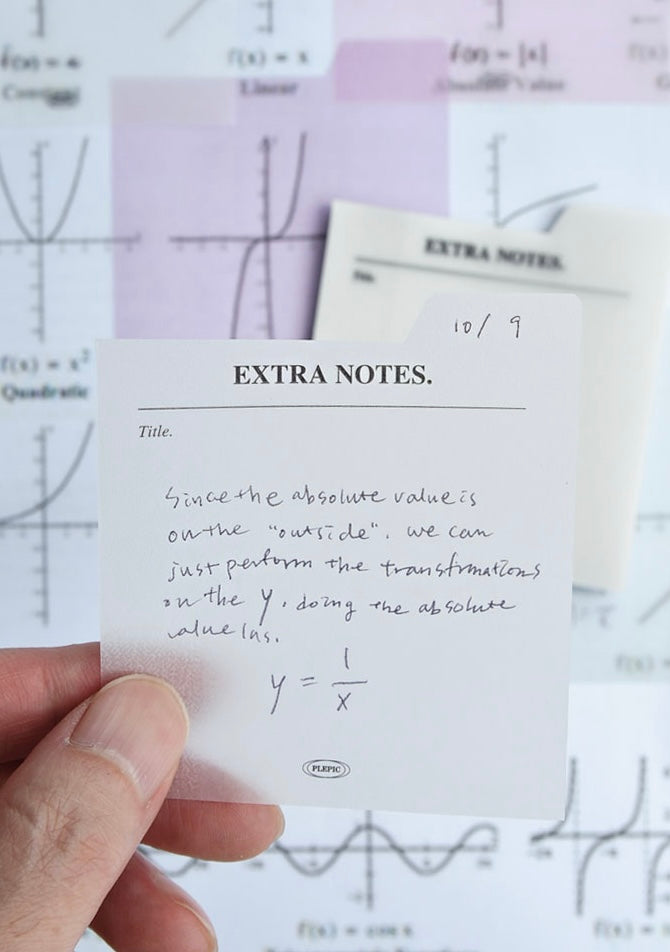 f(x) = x
Linear
f(x) = |x|
Absolute Value
EXTRA NOTES.
f(x) = x²
Quadratic
10/ 9
EXTRA NOTES.
Title.
Since the absolute value is
on the "outside". we can
just perform the transfrmations
on the y, doing the absolute
value las.
y = 1
x
PLEPIC
f(x) = cos x